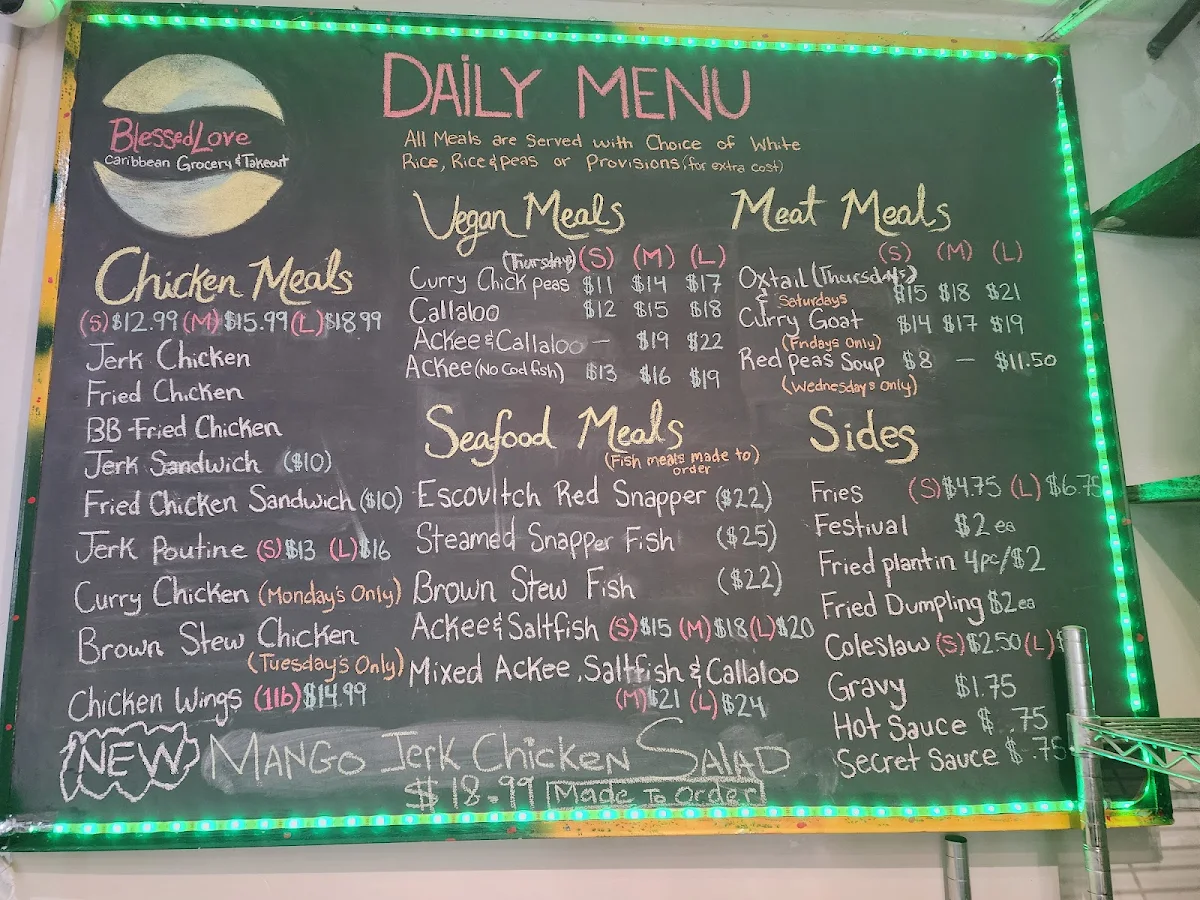 BlessedLove
Caribbean Grocery & Takeout
DAILY MENU
All Meals are Served with Choice of White
Rice, Rice & peas or Provisions (for extra cost)
Chicken Meals
(S) $12.99 (M) $15.99 (L) $18.99
Jerk Chicken
Fried Chicken
BB Fried Chicken
Jerk Sandwich ($10)
Fried Chicken Sandwich ($10)
Jerk Poutine (S) $13 (L) $16
Curry Chicken (Monday's Only)
Brown Stew Chicken
(Tuesday's Only)
Chicken Wings (1lb) $14.99
Vegan Meals
(Thursday) (S) (M) (L)
Curry Chick peas $11 $14 $17
Callaloo $12 $15 $18
Ackee & Callaloo — $19 $22
Ackee (No Cod fish) $13 $16 $19
Seafood Meals
(Fish meals made to
order)
Escovitch Red Snapper ($22)
Steamed Snapper Fish ($25)
Brown Stew Fish ($22)
Ackee & Saltfish (S) $15 (M) $18 (L) $20
Mixed Ackee, Saltfish & Callaloo
(M) $21 (L) $24
Meat Meals
(S) (M) (L)
Oxtail (Thursday's) $15 $18 $21
& Saturdays
Curry Goat $14 $17 $19
(Fridays Only)
Red Peas Soup $8 — $11.50
(Wednesday's Only)
Sides
Fries (S) $4.75 (L) $6.75
Festival $2 ea
Fried plantin 4pc/$2
Fried Dumpling $2 ea
Coleslaw (S) $2.50 (L) $
Gravy $1.75
Hot Sauce $ .75
Secret Sauce $ .75
NEW MANGO JERK CHICKEN SALAD
$18.99 Made To Order